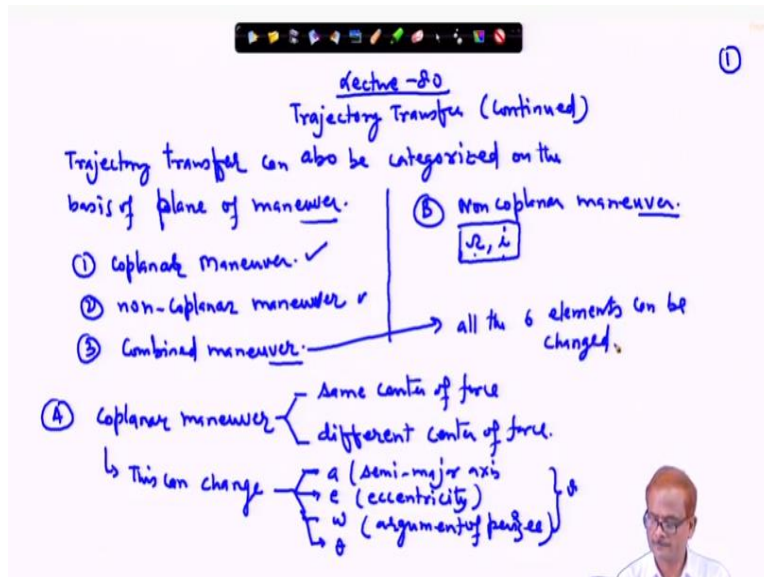 ①
Lecture-80
Trajectory Transfer (Continued)
Trajectory transfer can also be categorized on the
basis of plane of maneuver.
① Coplanar Maneuver. ✓
② non-Coplanar maneuver ✓
③ Combined maneuver.
Ⓑ Non coplanar maneuver.
Ω, i
→ all the 6 elements can be
changed.
Ⓐ Coplanar maneuver
same center of force
different center of force.
↳ This can change
a (semi-major axis
e (eccentricity)
ω (argument of perigee)
θ